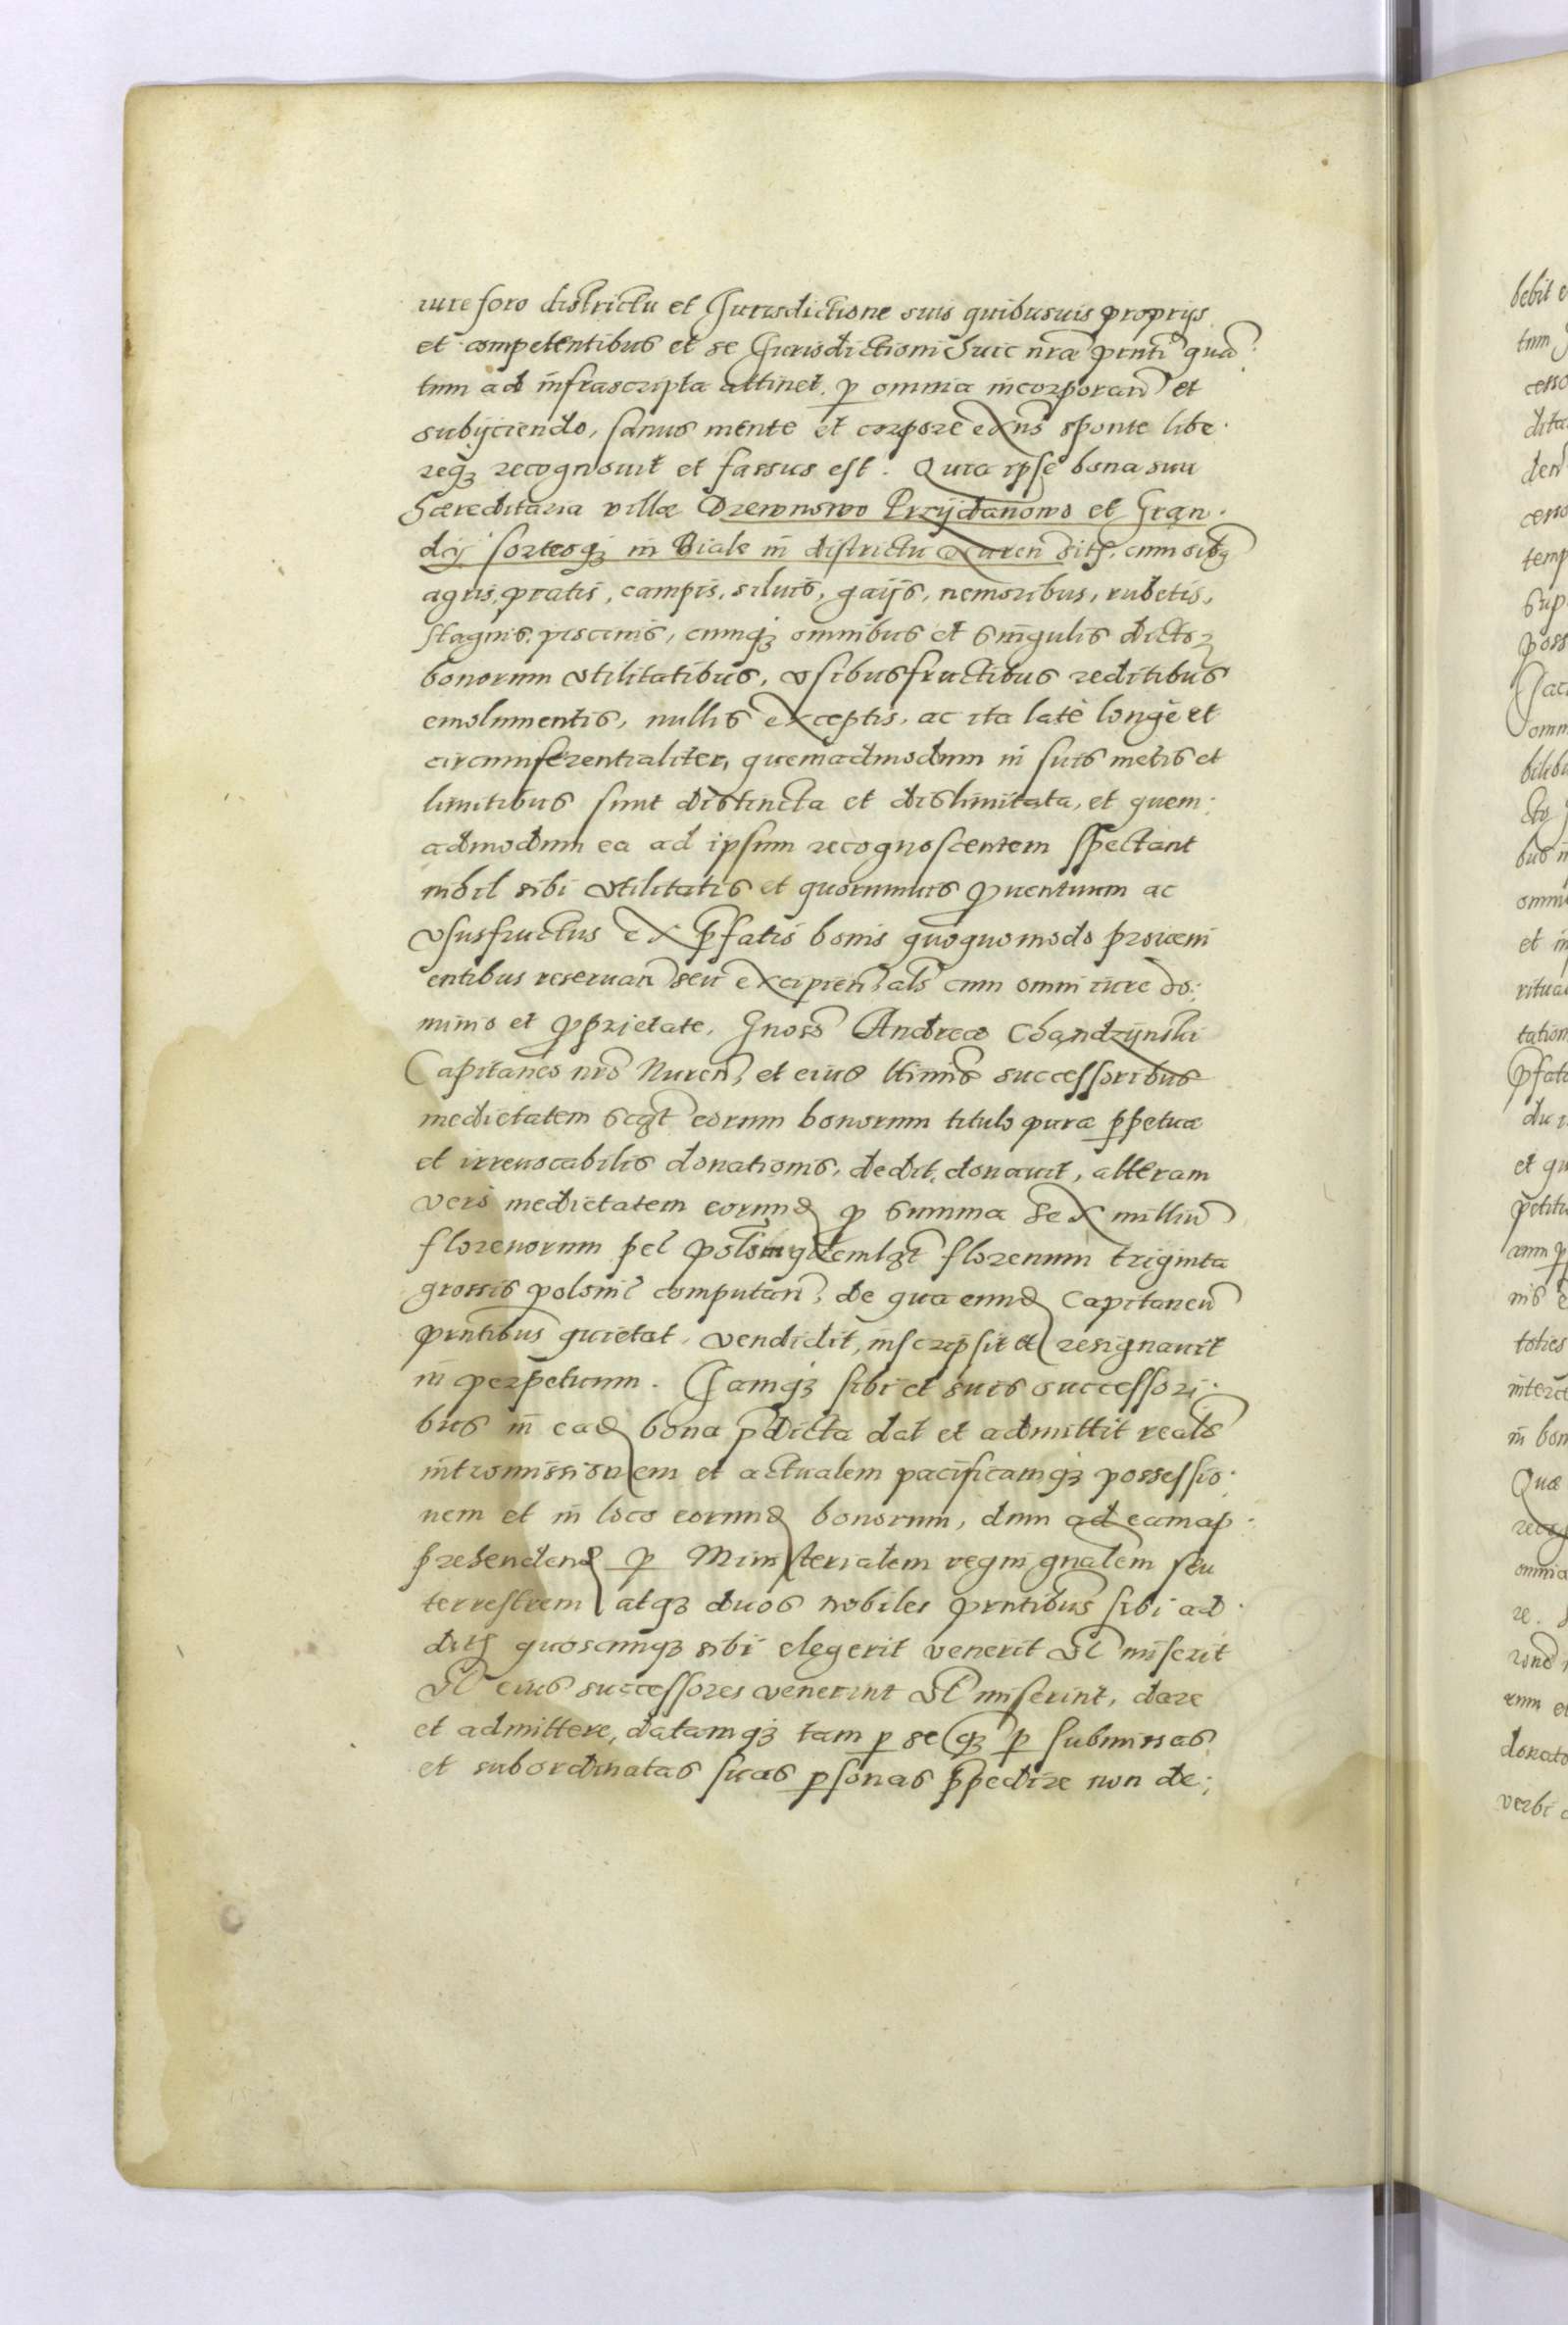 iure foro districtu et Jurisdictione suis quibusuis proprijs
et competentibus et se Jurisdictioni huic nrae pnti quã
tum ad infrascripta attinet. p omnia incorporan et
subijciendo, sanus mente et corpore exns sponte libe
reqꝫ recognouit et fassus est. Quia ipse bona sua
Haereditaria villae Drewnowo Przijdanowo et Gran
dij sortesqꝫ in Biale in districtu Nuren sith. cum oibꝫ
agris, pratis, campis, siluis, gaijs, nemoribus, rubetis,
stagnis, piscinis, cumqꝫ omnibus et singulis dictoꝝ
bonorum vtilitatibus, vsibusfructibus reditibus
emolumentis, nullis exceptis, ac ita latè longè et
circumferentialiter, quemadmodum in suis metis et
limitibus sunt distincta et dislimitata, et quem
admodum ea ad ipsum recognoscentem spectant
nihil sibi vtilitatis et quorumuis ꝓuentuum ac
vsusfructus ex p̃fatis bonis quoquomodo proueni
entibus reseruan seu excipien, als cum omni iure do:
minio et ꝓprietate, Gnoso Andreae Chandzijnski
Capitaneo nro Nuren, et eius ltimis successoribus
medietatem scqt eorum bonorum titulo purae ppetuae
et irreuocabilis donationis, dedit, donauit, alteram
vero medietatem eorund p summa sex milliũ
florenorum pel poloniqtemlqt florenum triginta
grossis polonil computan, de qua eund Capitaneũ
pntibus quietat, vendidit, inscripsit et resignauit
in perpetuum. Jamqꝫ sibi et suis successori
bus in ead bona pdicta dat et admittit reale
intromissionem et actualem pacificamqꝫ possessio
nem et in loco eorund bonorum, dum ad eam ap
prehendend p Ministerialem regni gnalem seu
terrestrem atqꝫ duos nobiles pntibus sibi ad
dith quoscunqꝫ sibi elegerit venerit vl miserit
vl eius successores venerint vl miserint, dare
et admittere, datamqꝫ tam p se qꝫ p submissas
et subordinatas suas psonas ppedire non de: